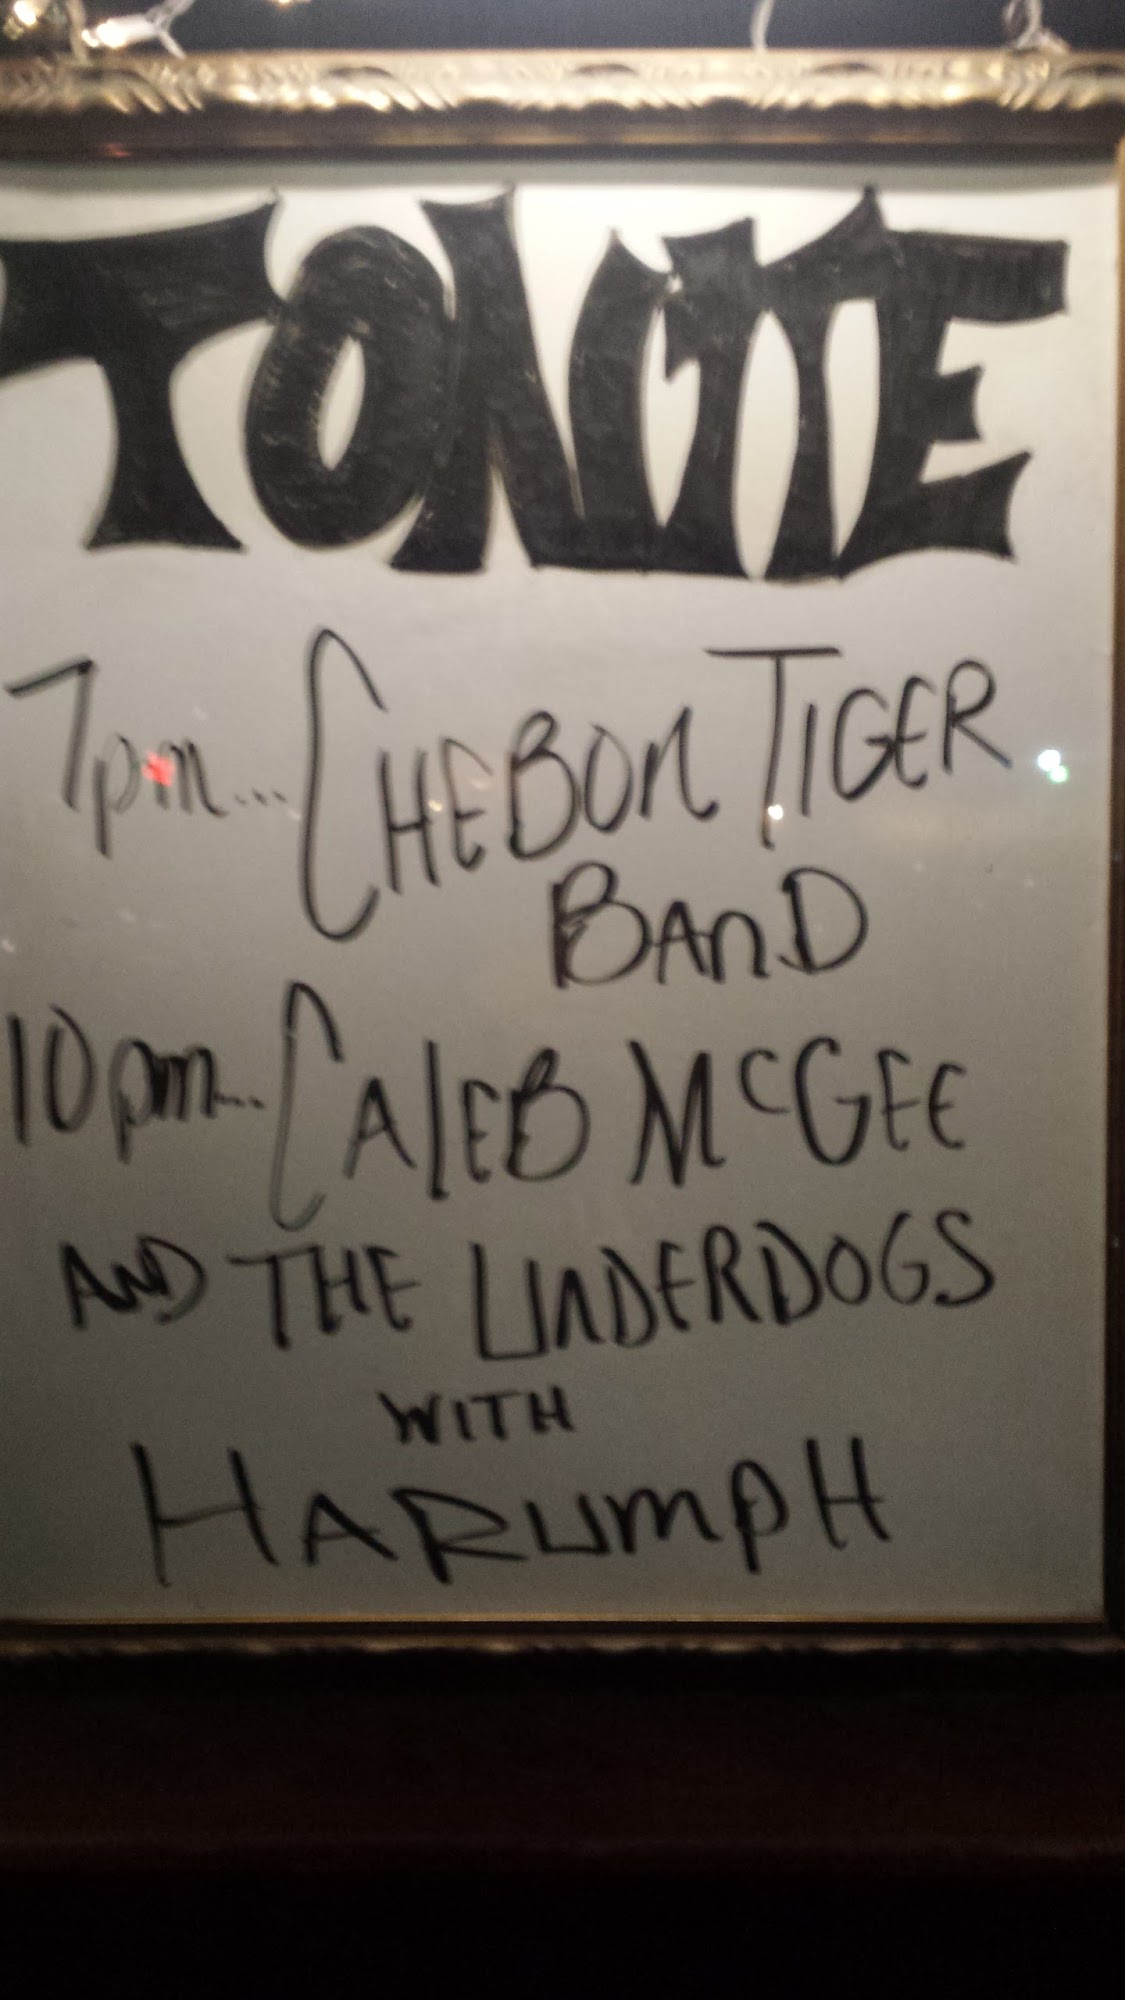 TONITE
7pm... CHEBON TIGER
BAND
10pm... CALEB McGEE
AND THE UNDERDOGS
WITH
HARUMPH